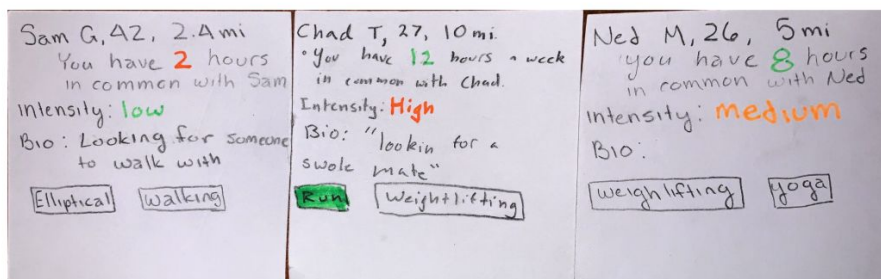 Sam G, 42, 2.4 mi
You have 2 hours
in common with Sam
Intensity: low
Bio: Looking for someone
to walk with
Elliptical Walking
Chad T, 27, 10 mi.
• You have 12 hours a week
in common with Chad.
Intensity: High
Bio: "lookin for a
swole mate"
Run Weightlifting
Ned M, 26, 5mi
you have 8 hours
in common with Ned
Intensity: medium
Bio:
Weighlifting yoga